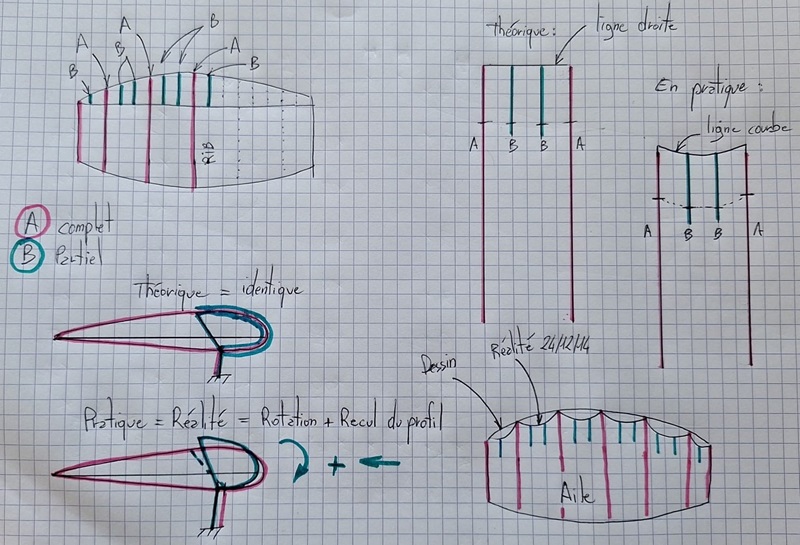 B
A
B
A
B
A
B
RiB
A complet
B Partiel
théorique :
ligne droite
A
B
B
A
En pratique :
ligne courbe
A
B
B
A
Théorique = identique
Pratique = Réalité = Rotation + Recul du profil
+
Dessin
Réalité 24/12/14
Aile